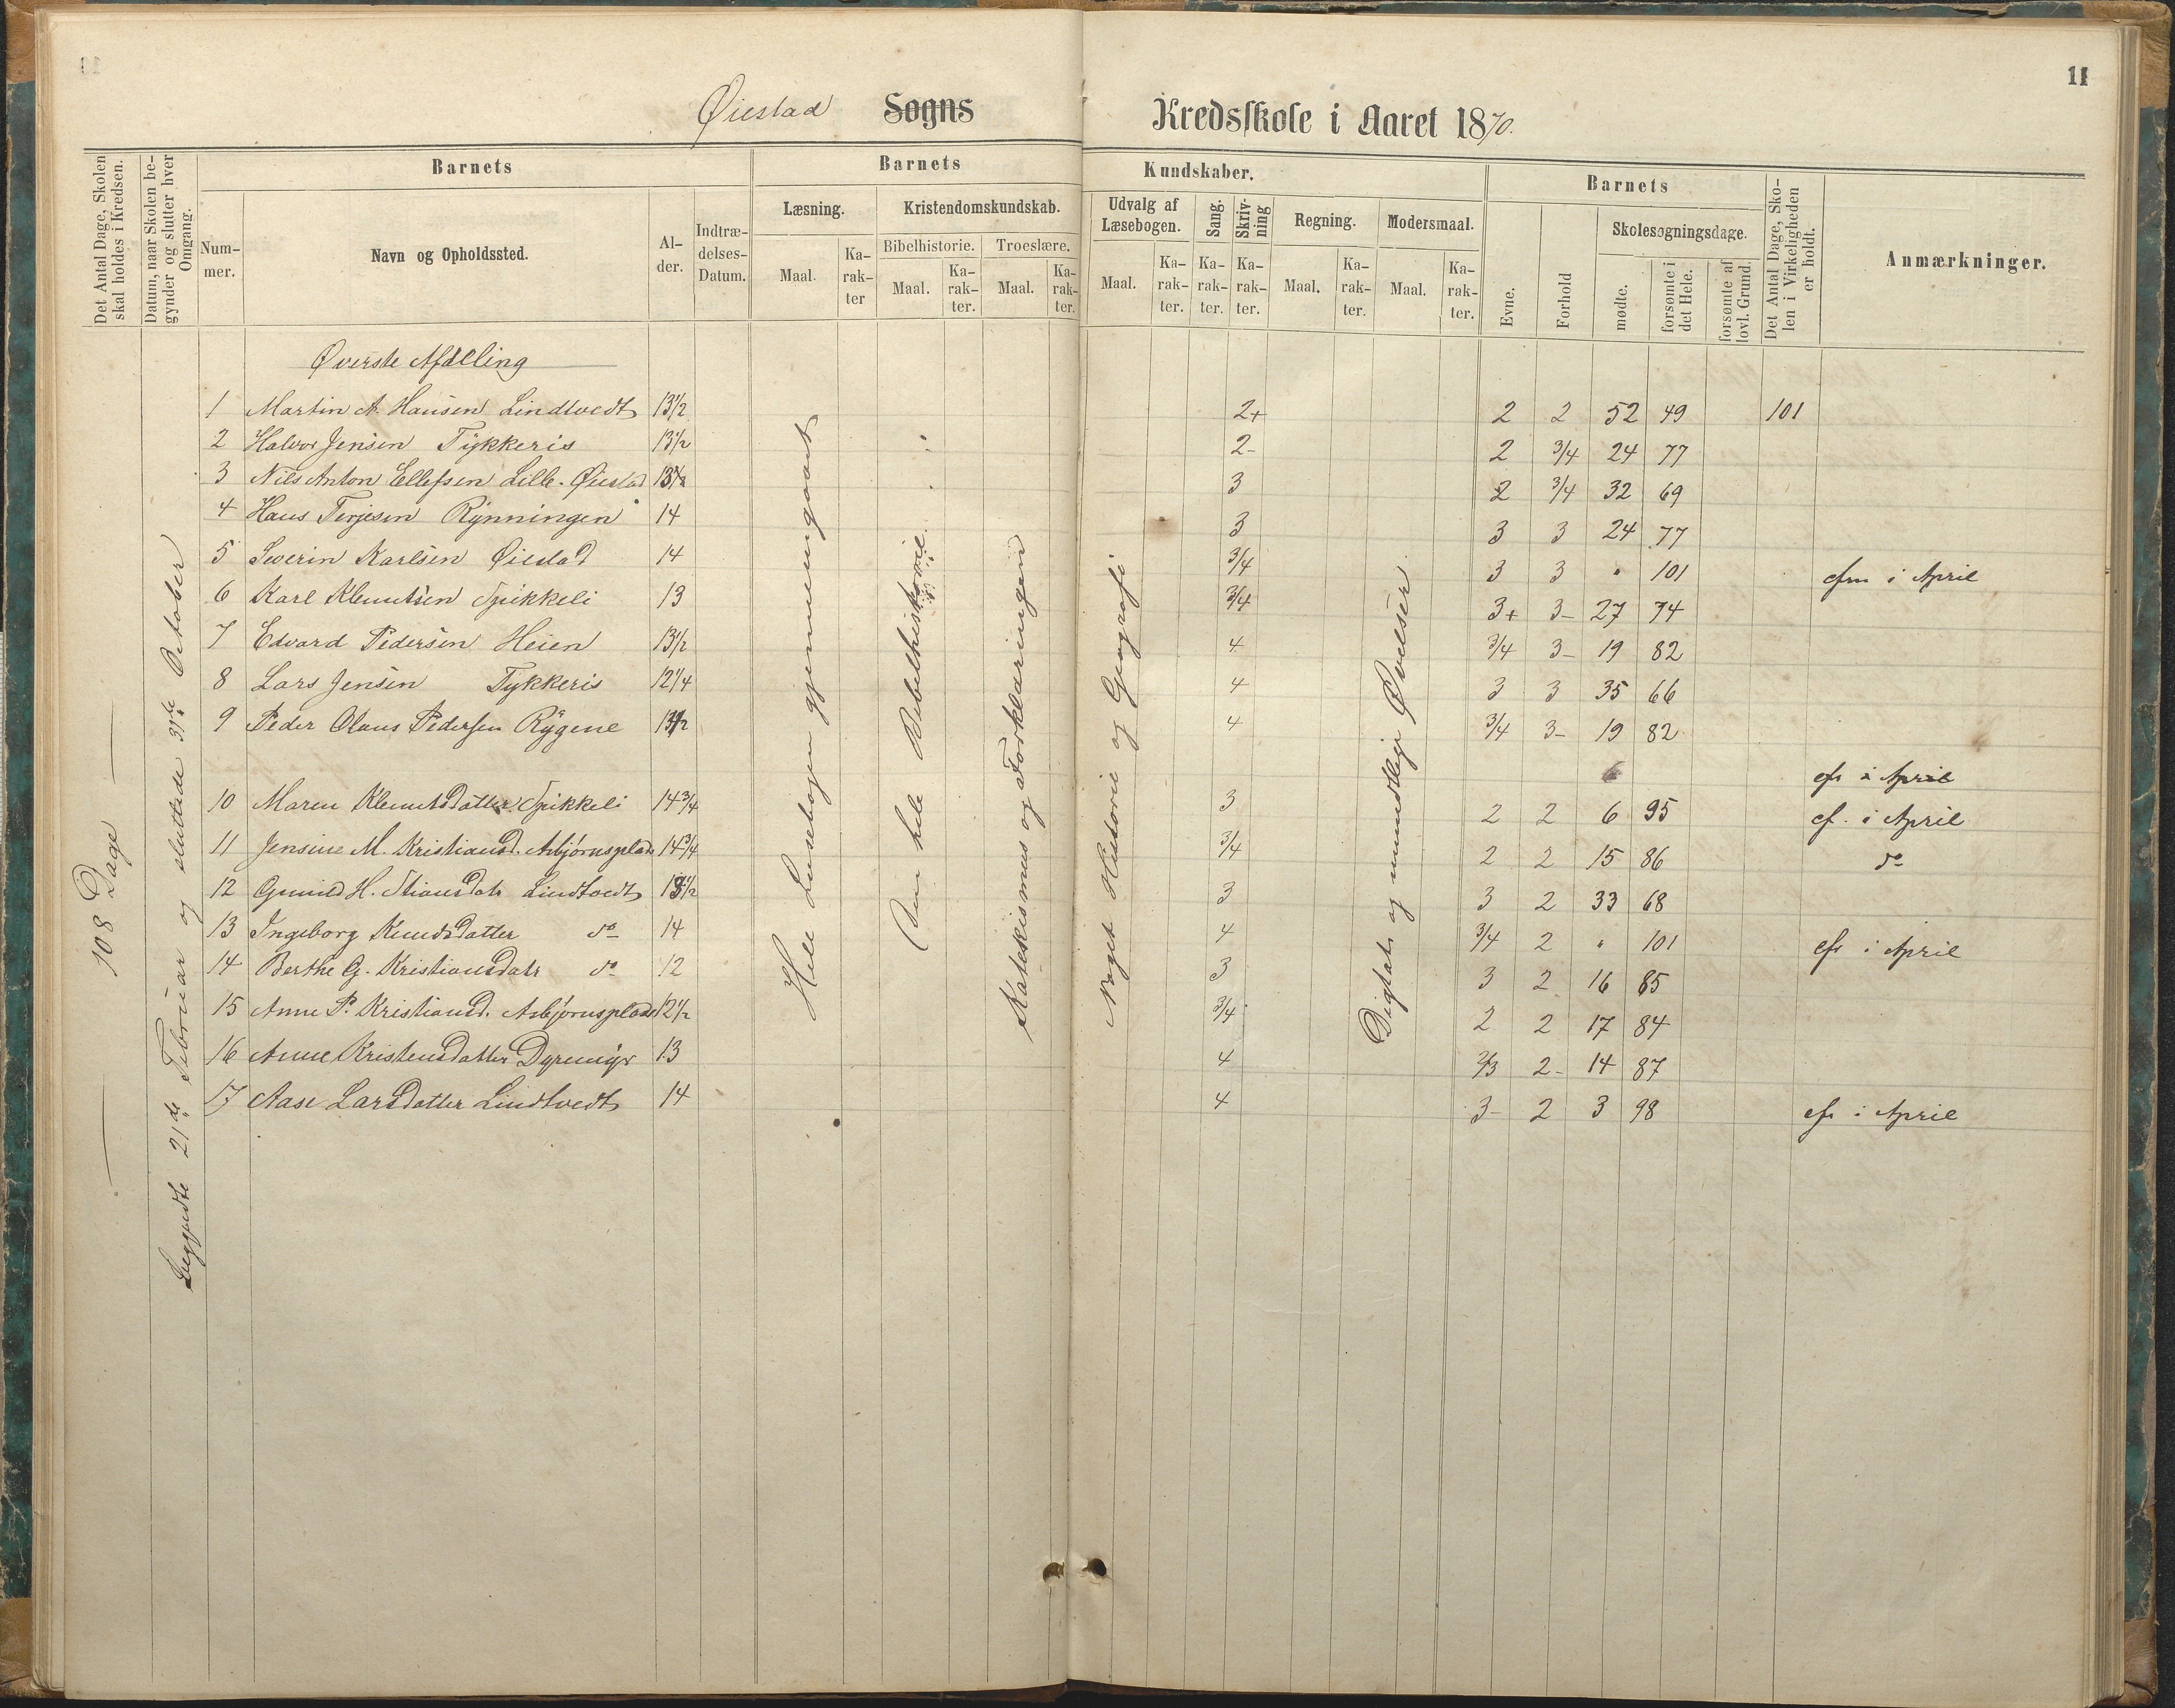 11
Øiestad Sogns Kredsskole i Aaret 1870.
Det Antal Dage, Skolen skal holdes i Kredsen.
Datum, naar Skolen begynder og slutter hver Omgang.
Barnets
Nummer.
Navn og Opholdssted.
Alder.
Indtrædelses-Datum.
Barnets Kundskaber.
Læsning.
Maal. Karakter
Kristendomskundskab.
Bibelhistorie. Troeslære.
Maal. Karakter. Maal. Karakter.
Udvalg af Læsebogen.
Maal. Karakter.
Sang. Karakter.
Skrivning Karakter.
Regning.
Maal. Karakter.
Modersmaal.
Maal. Karakter.
Barnets
Evne.
Forhold
Skolesøgningsdage.
mødte.
forsømte i det Hele.
forsømte af lovl. Grund.
Det Antal Dage, Skolen i Virkeligheden er holdt.
Anmærkninger.
108 Dage
Begyndte 21de Februar og sluttede 31te October
Hele Læsebogen gjennemgaaet
Den hele Bibelhistorie
Katekismus og Forklaringen
Noget Historie og Geografi
Digtat og mundtlige Øvelser
Øverste Afdeling
1 Martin A. Hansen Lindtvedt 13 1/2 2+ 2 2 52 49 101
2 Halvor Jensen Tykkeris 13 1/2 2- 2 3/4 24 77
3 Nils Anton Ellefsen Lille-Øiestad 3 2 3/4 32 69
4 Hans Terjesen Rynningen 14 3 3 3 24 77
5 Severin Karlsen Øiestad 14 3/4 3 3 " 101 i April
6 Karl Klemetsen Spikkeli 13 3/4 3+ 3- 27 74
7 Edvard Pedersen Heien 13 1/2 4 3/4 3- 19 82
8 Lars Jensen Tykkeris 12 1/4 4 3 3 35 66
9 Peder Olaus Pedersen Rygene 4 3/4 3- 19 82
i April
10 Maren Klemetsdatter Spikkeli 14 3/4 3 2 2 6 95 cf. i April
11 Jensine M. Kristiansd. Asbjørnsplads 14 3/4 3/4 2 2 15 86 do
12 Gunild H. Stiansdatr Lindtvedt 13 1/2 3 3 2 33 68
13 Ingeborg Knudsdatter do 14 4 3/4 2 " 101 i April
14 Berthe G. Kristiansdatr do 12 3 3 2 16 85
15 Anne P. Kristiansd. Asbjørnsplads 12 1/2 3/4 2 2 17 84
16 Anne Kristensdatter Dyremyr 13 4 2/3 2- 14 87
17 Aase Larsdatter Lindtvedt 14 4 3- 2 3 98 i April